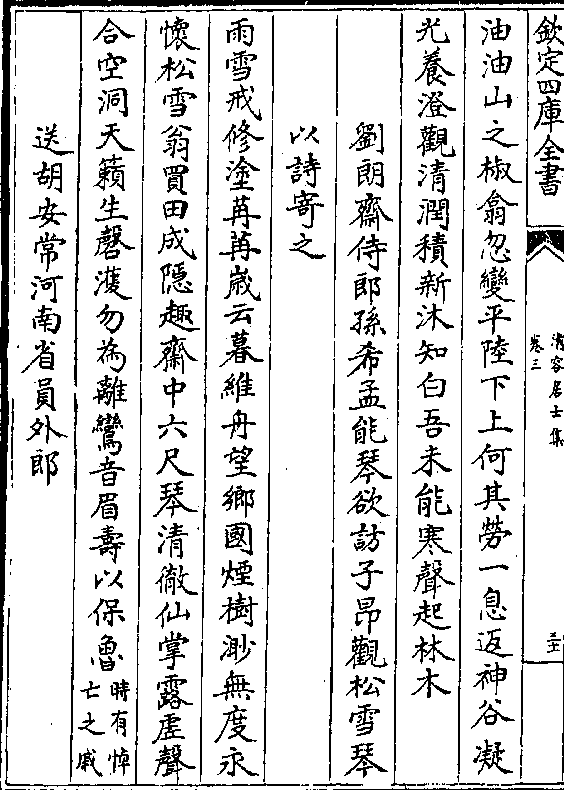 欽定四庫全書
清容居士集
卷三
三十
油油山之椒翕忽變平陸下上何其勞一息返神谷凝
光養澄觀清潤積新沐知白吾未能寒聲起林木
劉朗齋侍郎孫希孟能琴欲訪子昂觀松雪琴
以詩寄之
雨雪戒修塗苒苒歲云暮維舟望鄉國煙樹渺無度永
懷松雪翁買田成隱趣齋中六尺琴清徹仙掌露虛聲
合空洞天籟生磬濩勿為離鸞音眉壽以保魯時有悼
亡之戚
送胡安常河南省員外郎